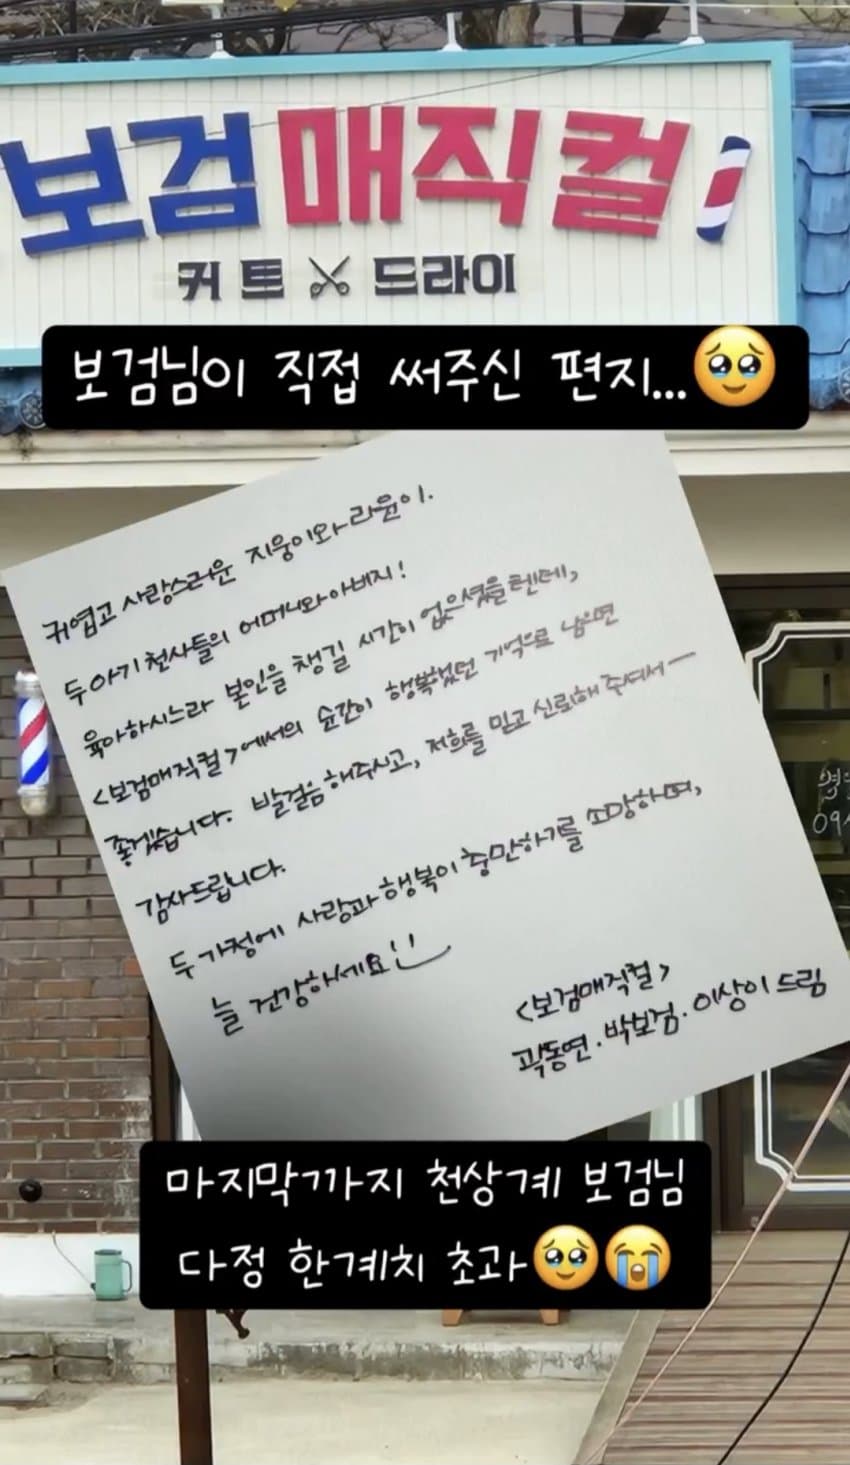 보검매직컬
커트 드라이
보검님이 직접 써주신 편지...🥹
귀엽고 사랑스러운 지웅이와 라윤이.
두 아기 천사들의 어머니와 아버지!
육아하시느라 본인을 챙길 시간이 없으셨을텐데,
<보검매직컬>에서의 순간이 행복했던 기억으로 남으면
좋겠습니다. 발걸음해주시고, 저희를 믿고 신뢰해 주셔서ㅡ
감사드립니다.
두 가정에 사랑과 행복이 충만하기를 소망하며,
늘 건강하세요
<보검매직컬>
곽동연·박보검·이상이 드림
마지막까지 천상계 보검님
다정 한계치 초과🥹😭